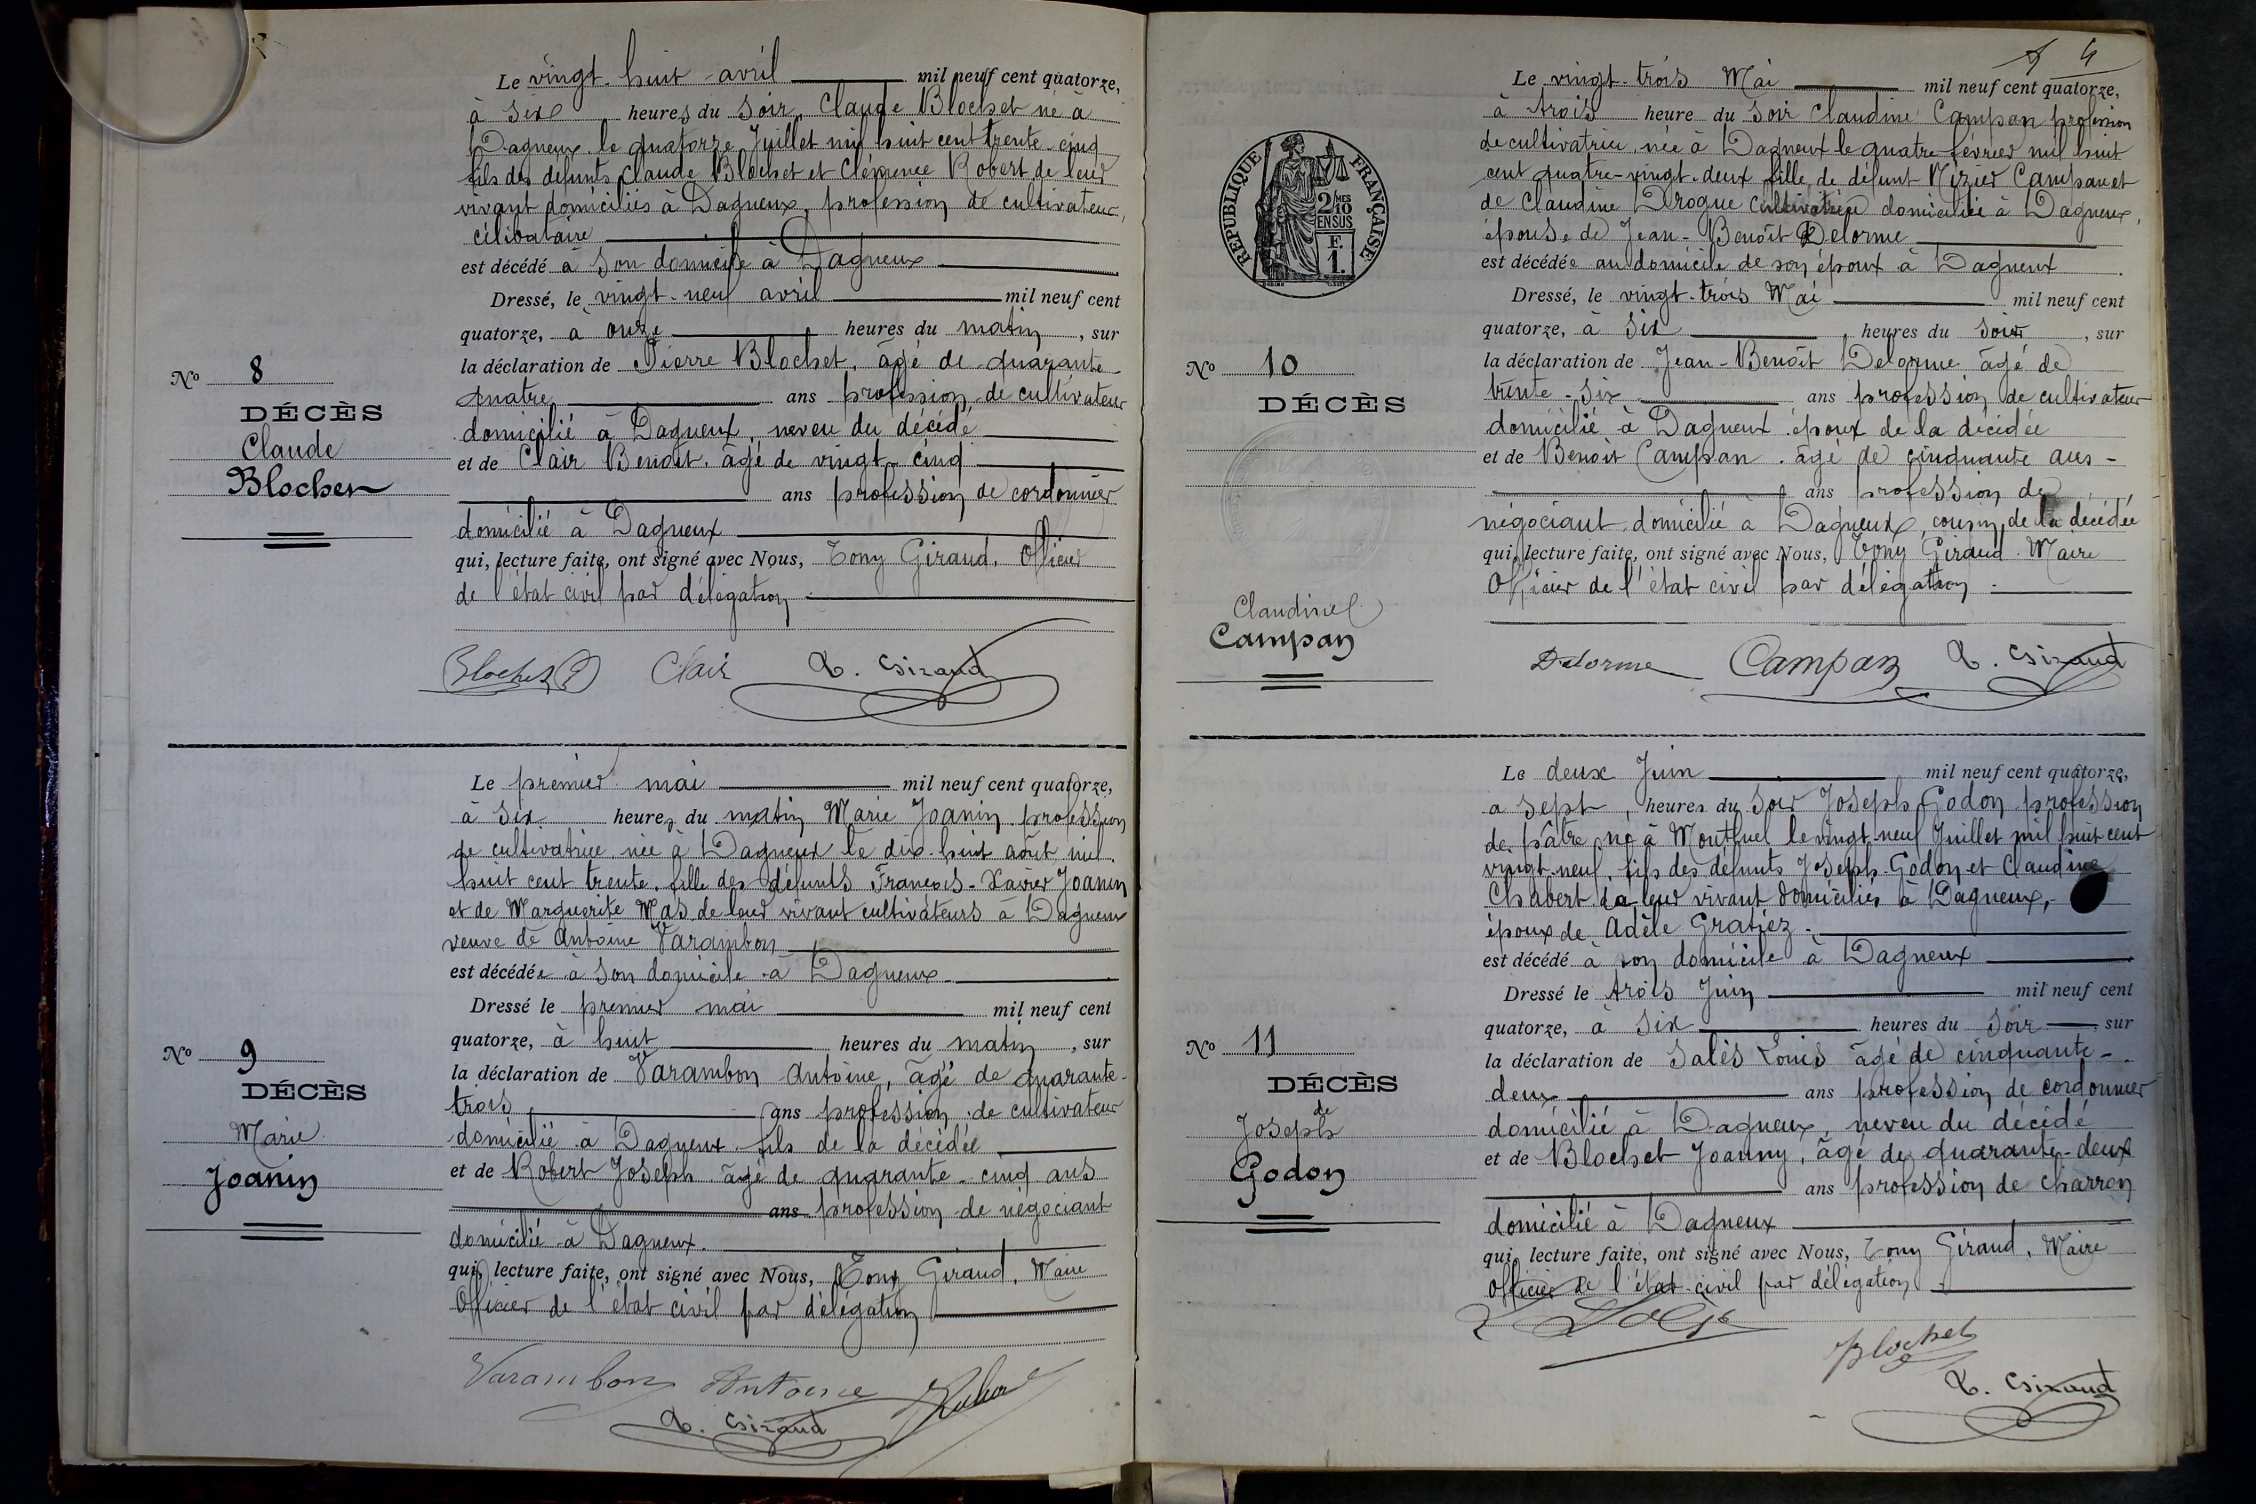 Le vingt-huit avril mil neuf cent quatorze,
à six heures du soir, Claude Blochet né à
Dagneux le quatorze Juillet mil huit cent trente-cinq
fils des défunts Claude Blochet et Clémence Robert de leur
vivant domiciliés à Dagneux, profession de cultivateur,
célibataire
est décédé à son domicile à Dagneux
Dressé, le vingt-neuf avril mil neuf cent
quatorze, à onze heures du matin, sur
la déclaration de Pierre Blochet, âgé de quarante
quatre ans profession de cultivateur
domicilié à Dagneux, neveu du décédé
et de Clair Benoît, âgé de vingt-cinq
ans profession de cordonnier
domicilié à Dagneux
qui, lecture faite, ont signé avec Nous, Tony Giraud, Officier
de l'état civil par délégation
Nº 8
DÉCÈS
Claude
Blochet
Blochet P Clair T. Giraud
Le premier mai mil neuf cent quatorze,
à six heures du matin Marie Joanin profession
de cultivatrice née à Dagneux le dix-huit août mil
huit cent trente, fille des défunts François-Xavier Joanin
et de Marguerite Mas de leur vivant cultivateurs à Dagneux
veuve de Antoine Varambon
est décédée à son domicile à Dagneux
Dressé le premier mai mil neuf cent
quatorze, à huit heures du matin, sur
la déclaration de Varambon Antoine, âgé de quarante-
trois ans profession de cultivateur
domicilié à Dagneux fils de la décédée
et de Robert Joseph âgé de quarante-cinq ans
ans profession de négociant
domicilié à Dagneux.
qui, lecture faite, ont signé avec Nous, Tony Giraud, Maire
Officier de l'état civil par délégation
Nº 9
DÉCÈS
Marie
Joanin
Varambon Antoine Robert
T. Giraud
4
Le vingt-trois Mai mil neuf cent quatorze,
à trois heure du soir Claudine Campan profession
de cultivatrice, née à Dagneux le quatre février mil huit
cent quatre-vingt-deux fille de défunt Nizier Campan et
de Claudine Drogue cultivatrice domiciliée à Dagneux,
épouse de Jean-Benoît Delorme
est décédée au domicile de son époux à Dagneux
Dressé, le vingt-trois Mai mil neuf cent
quatorze, à six heures du soir, sur
la déclaration de Jean-Benoît Delorme âgé de
trente-six ans profession de cultivateur
domicilié à Dagneux époux de la décédée
et de Benoît Campan âgé de cinquante ans-
ans profession de
négociant domicilié à Dagneux, cousin de la décédée
qui, lecture faite, ont signé avec Nous, Tony Giraud Maire
Officier de l'état civil par délégation
RÉPUBLIQUE FRANÇAISE
2/10MES
EN SUS
F.
1.
Nº 10
DÉCÈS
Claudine
Campan
Delorme Campan T. Giraud
Le deux Juin mil neuf cent quatorze,
a sept heures du soir Joseph Godon profession
de pâtre né à Montluel le vingt-neuf Juillet mil huit cent
vingt-neuf, fils des défunts Joseph Godon et Claudine
Chabert de leur vivant domiciliés à Dagneux,
époux de Adèle Gratiez
est décédé à son domicile à Dagneux
Dressé le trois Juin mil neuf cent
quatorze, à six heures du soir, sur
la déclaration de Salès Louis âgé de cinquante-
deux ans profession de cordonnier
domicilié à Dagneux, neveu du décédé
et de Blochet Joanny, âgé de quarante-deux
ans profession de charron
domicilié à Dagneux
qui, lecture faite, ont signé avec Nous, Tony Giraud, Maire
Officier de l'état civil par délégation
Nº 11
DÉCÈS
de
Joseph
Godon
Blochet
T. Giraud